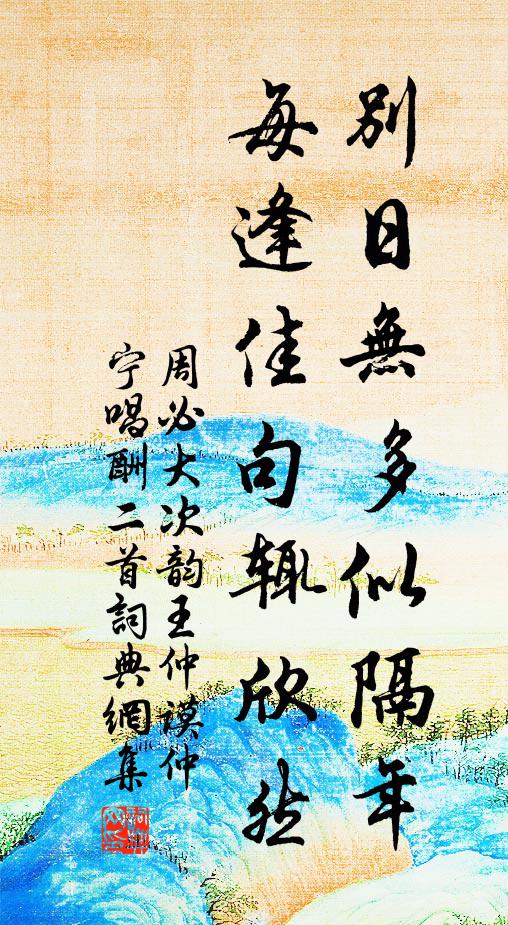 別日無多似隔年
每逢佳句辄欣然
周必大次韵王仲謨仲
宁唱酬二首詞典網集